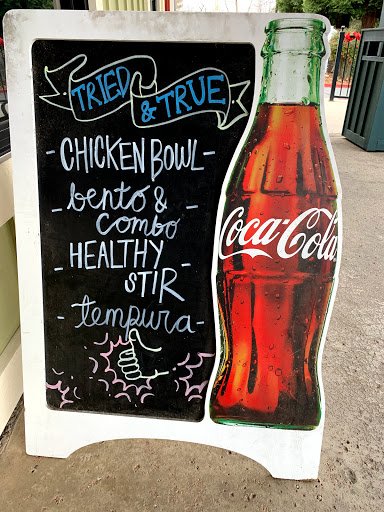 TRIED
& TRUE
- CHICKEN BOWL -
- bento &
combo -
- HEALTHY
STIR -
- tempura -
Coca-Cola